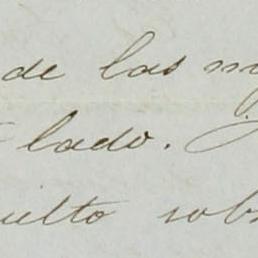 de las
lado.
uelto sob